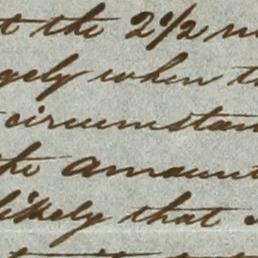 t the 2 1/2 m
gely when t
circumstan
the amount
likely that